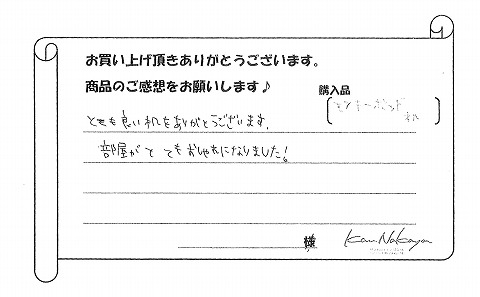 お買い上げ頂きありがとうございます。
商品のご感想をお願いします♪
購入品
机
とても良い机をありがとうございます。
部屋がとてもおしゃれになりました!
様